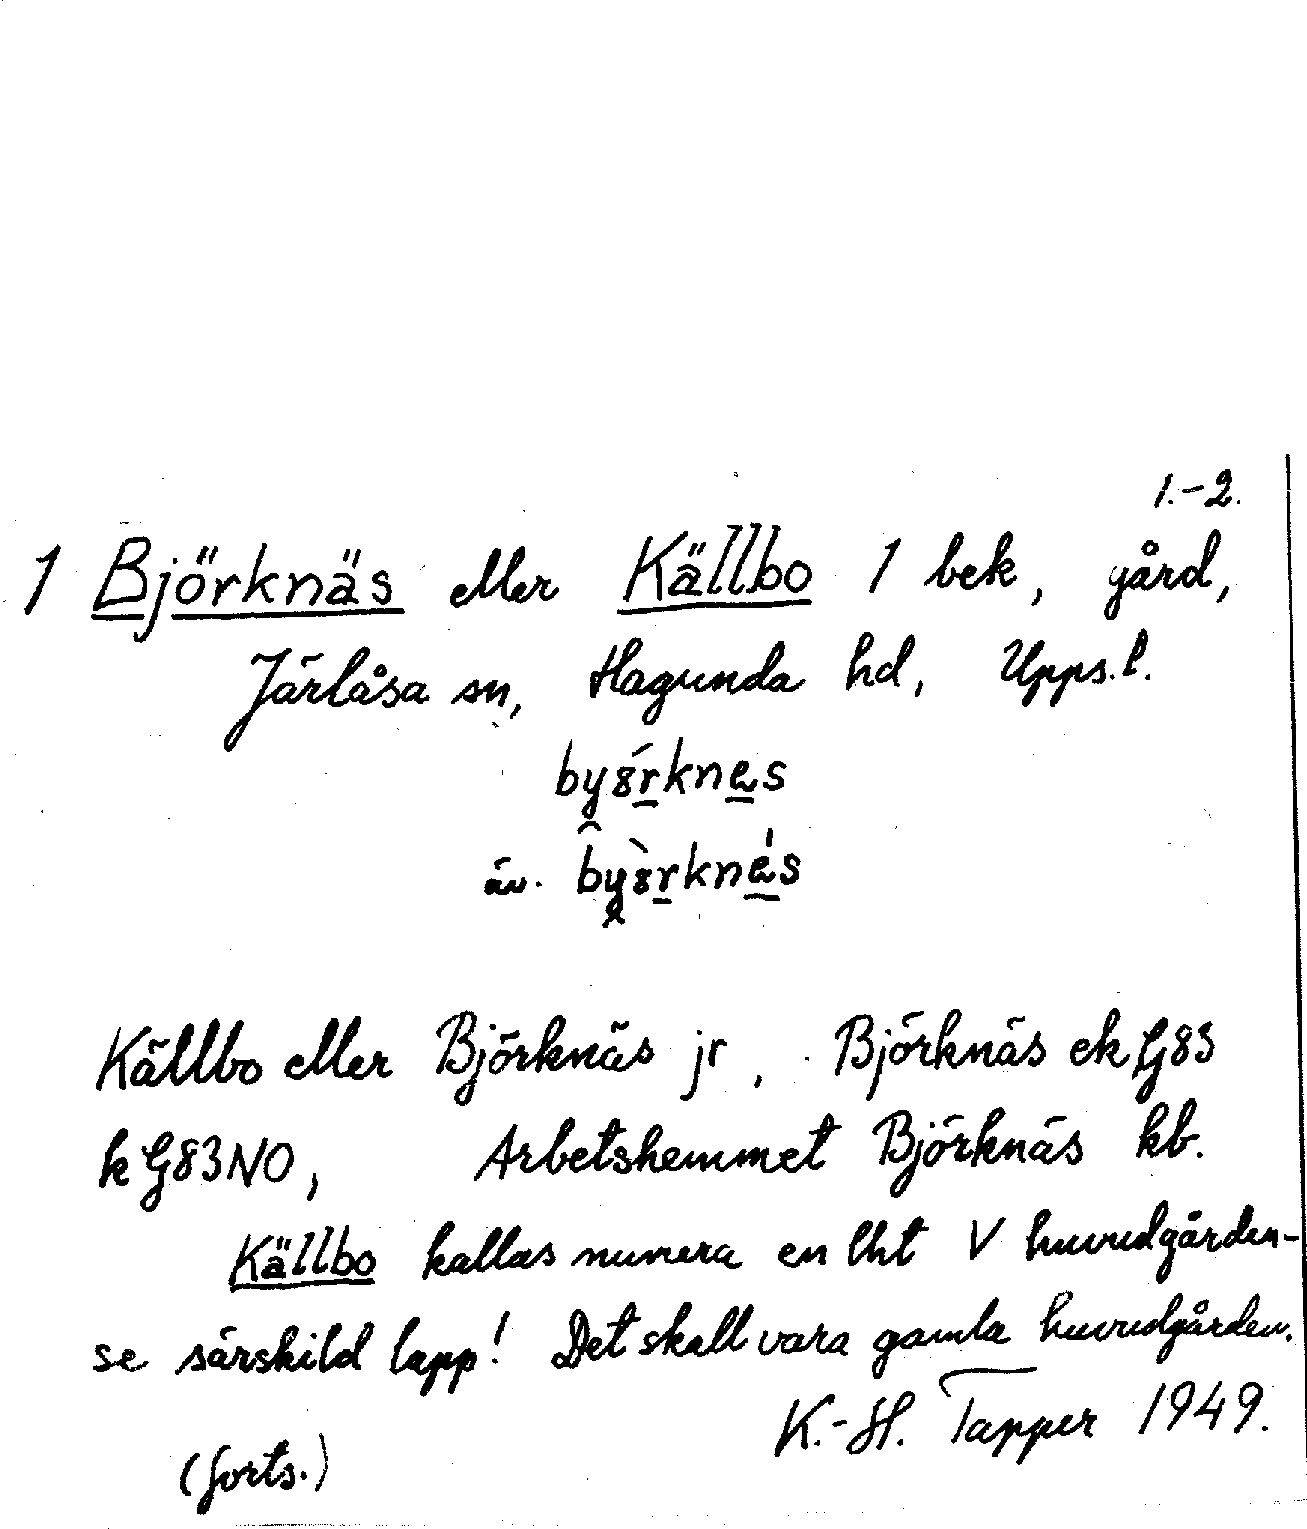 1.-2.
1 Björknäs eller Källbo 1 bek, gård,
Järlåsa sn, Hagunda hd, Upps.l.
av.
Källbo eller Björknäs jr, Björknäs ek G83
k G83NO, Arbetshemmet Björknäs kb.
Källbo kallas numera en lht V huvudgården-
se särskild lapp! Det skall vara gamla huvudgården.
K.-H. Tapper 1949.
(forts.)